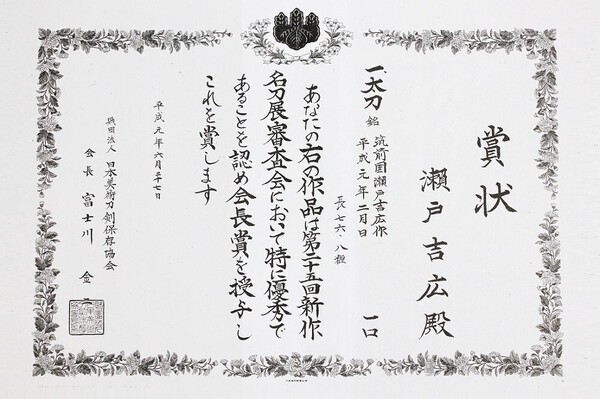 賞状
瀬戸吉広殿
一、太刀 銘 筑前国瀬戸吉広作
平成元年二月日
長七六・八糎 一口
あなたの右の作品は第二十五回新作
名刀展審査会において特に優秀で
あることを認め会長賞を授与し
これを賞します
平成元年六月二十七日
財団法人 日本美術刀剣保存協会
会長 富士川金二